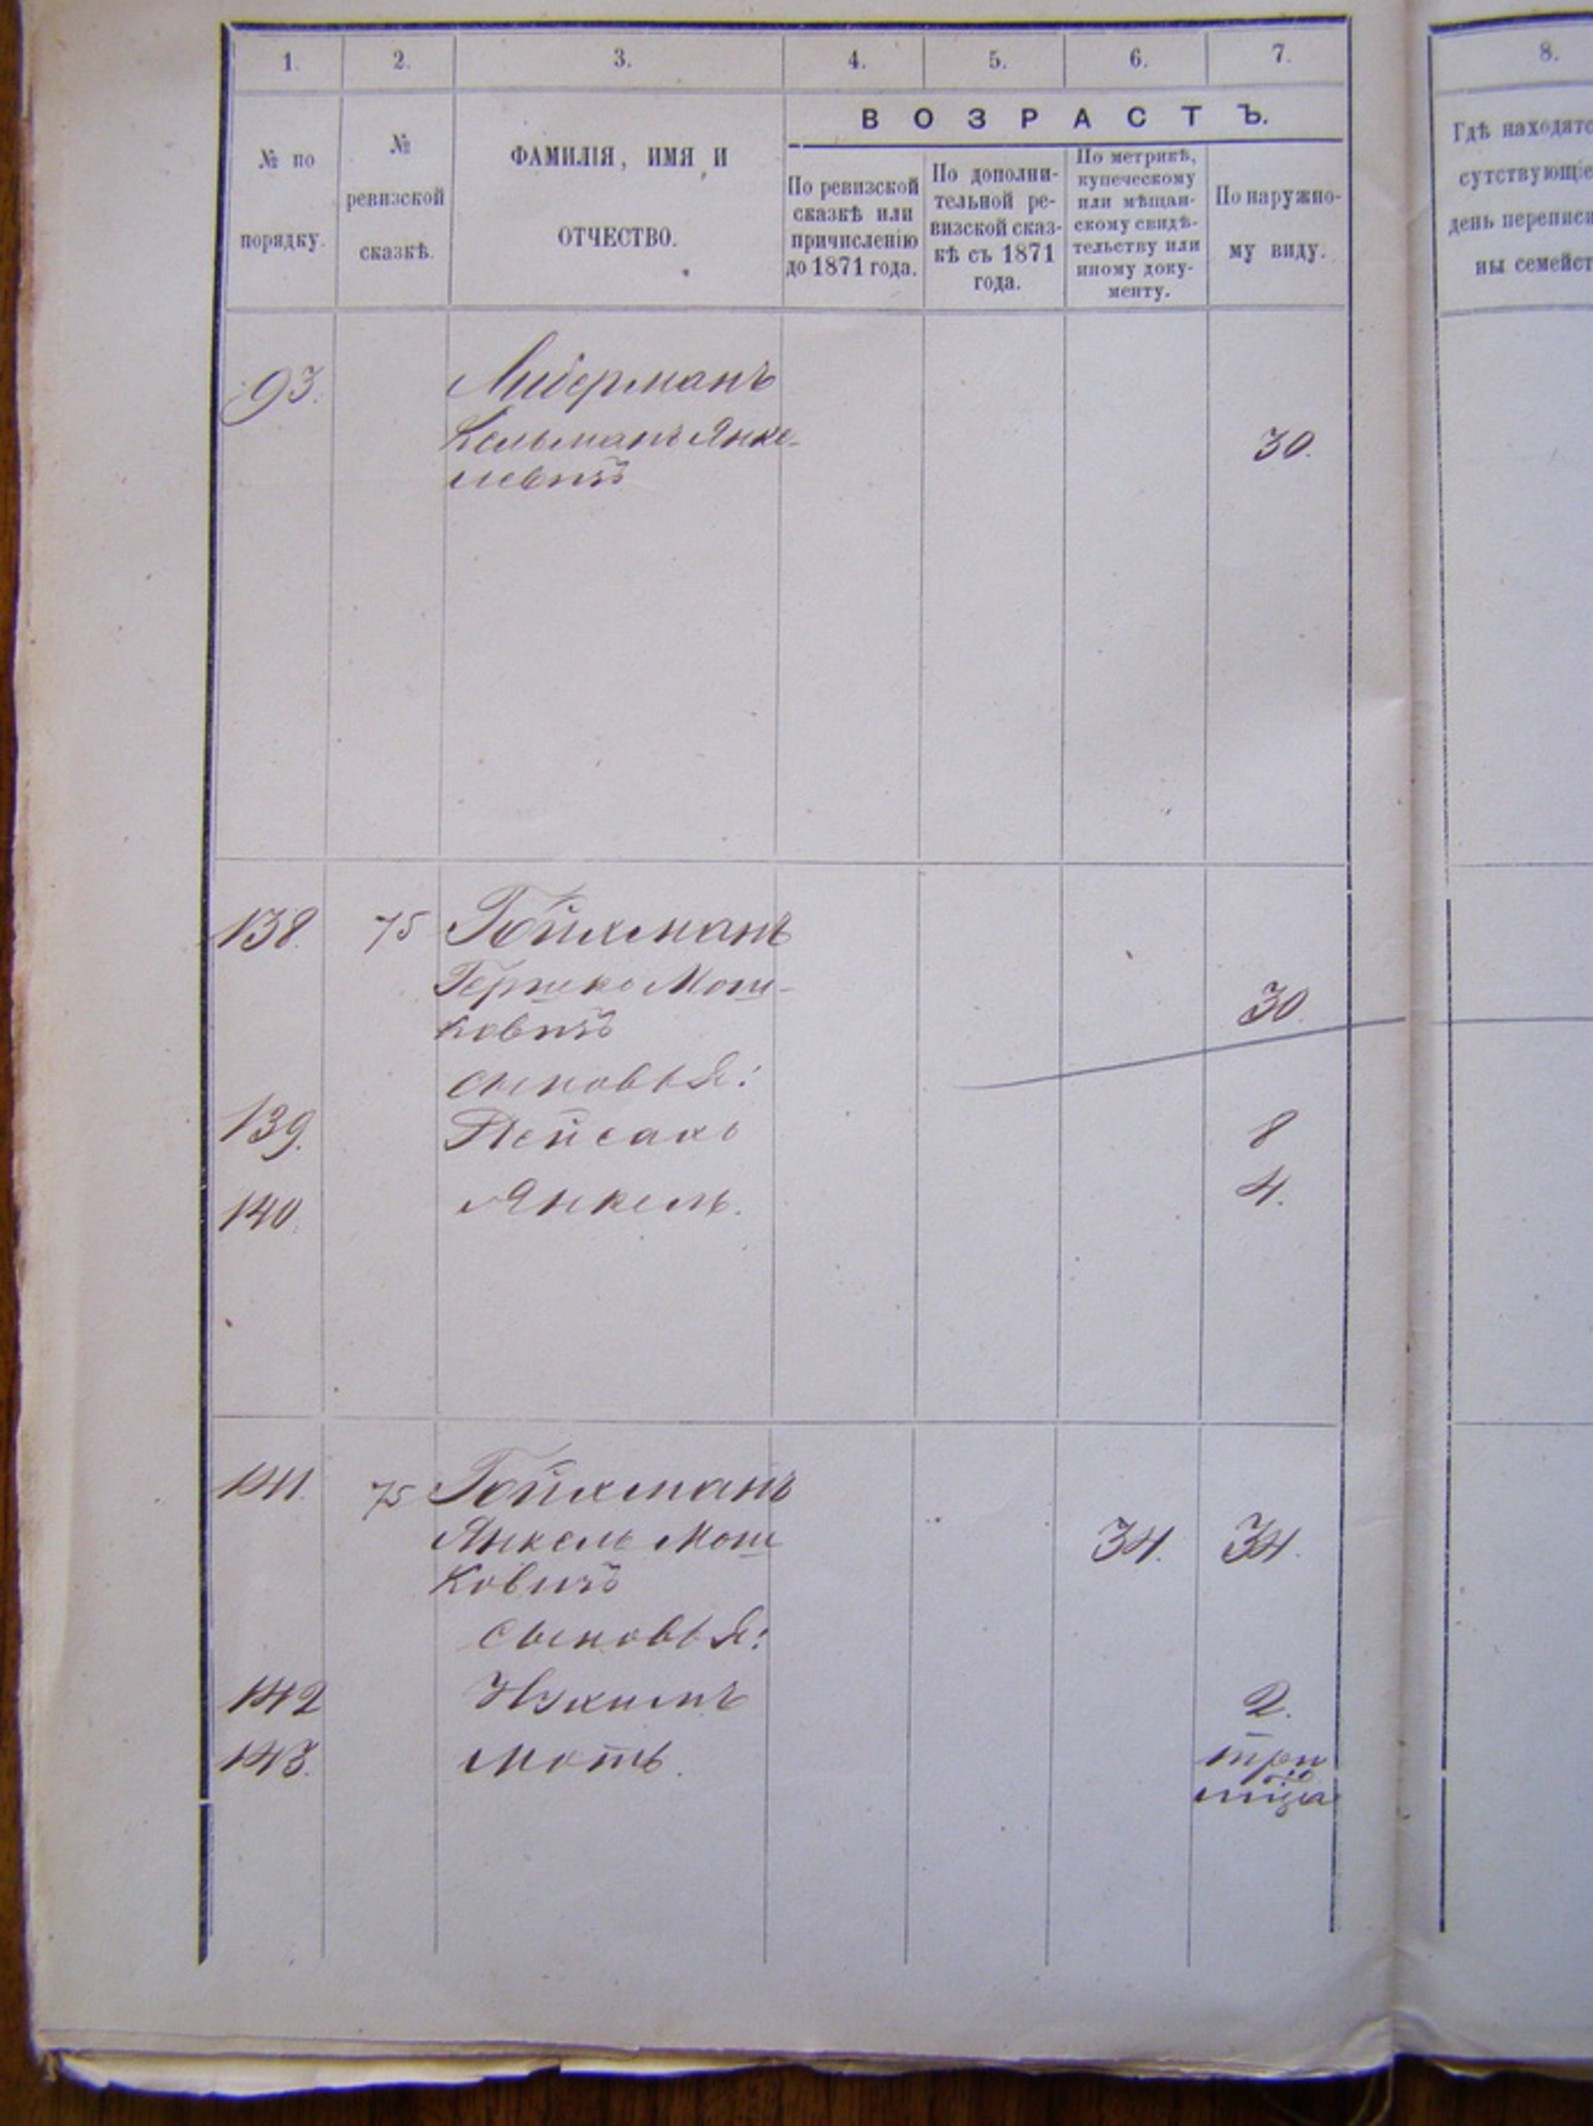 1. 2. 3. 4. 5. 6. 7. 8.
№ по
порядку.
№
ревизской
сказкѣ.
ФАМИЛІЯ, ИМЯ И
ОТЧЕСТВО.
ВОЗРАСТЪ.
По ревизской
сказкѣ или
причисленію
до 1871 года.
По дополни-
тельной ре-
визской сказ-
кѣ съ 1871
года.
По метрикѣ,
купеческому
или мѣщан-
скому свидѣ-
тельству или
иному доку-
менту.
По наружно-
му виду.
Гдѣ находятс
сутствующіе
день переписи
ны семейст
93. Либерманъ
Кельманъ Янке-
левичъ 30.
138. 75 Гойхманъ
Гершко Мош-
ковичъ 30.
сыновья:
139. Пейсахъ 8
140. Янкель. 4.
141. 75 Гойхманъ
Янкель Мош
ковичъ 34. 34.
сыновья:
142 Нухимъ 2.
143. Моть. три